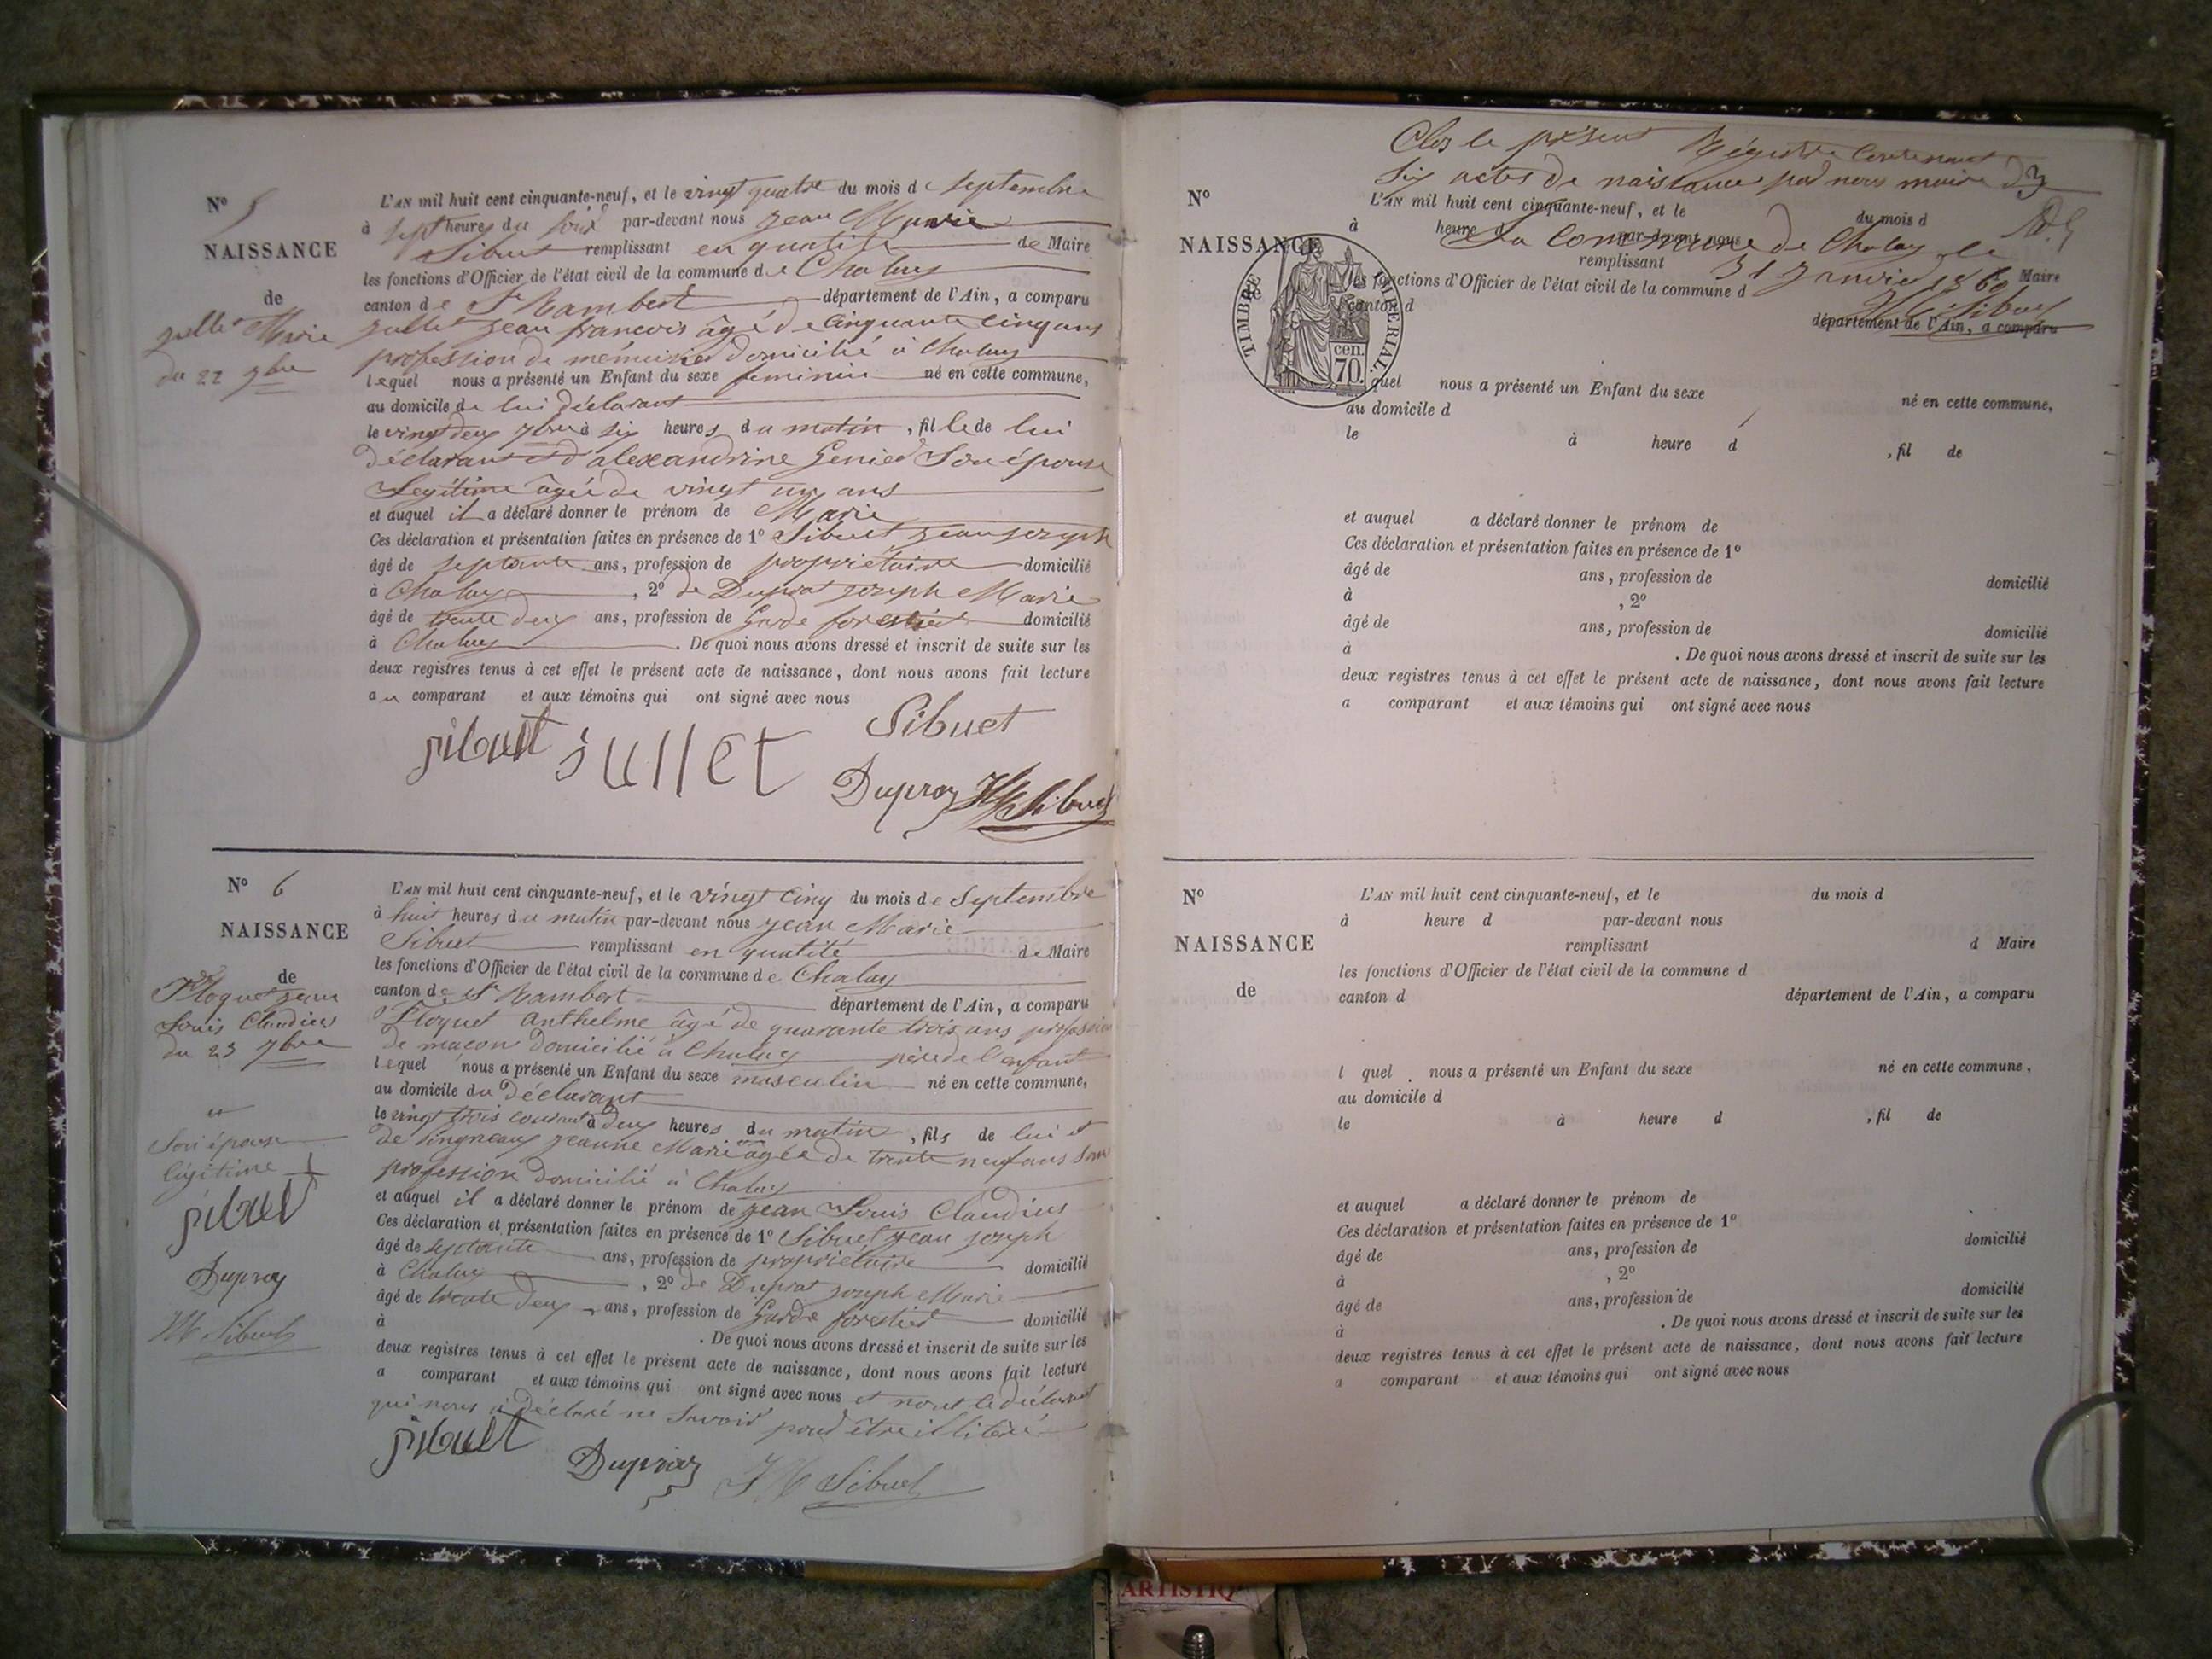 N° 5
NAISSANCE
de
jullet Marie
du 22 7bre
L'AN mil huit cent cinquante-neuf, et le vingt quatre du mois de Septembre
à sept heures du soir par-devant nous Jean Marie
Sibuet remplissant en qualité de Maire
les fonctions d'Officier de l'état civil de la commune de Chaley
canton de St Rambert département de l'Ain, a comparu
jullet jean francois âgé de Cinquante Cinq ans
profession de domicilié à Chaley
lequel nous a présenté un Enfant du sexe feminin né en cette commune,
au domicile de lui déclarant
le vingt deux 7bre à six heures du matin, fille de lui
déclarant et d'alexandrine Genied Son épouse
Legitime âgée de vingt un ans
et auquel il a déclaré donner le prénom de Marie
Ces déclaration et présentation faites en présence de 1° Sibuet jean joseph
âgé de septante ans, profession de propriétaire domicilié
à Chaley, 2° de Duprat joseph Marie
âgé de trente deux ans, profession de Garde forestier domicilié
à Chaley. De quoi nous avons dressé et inscrit de suite sur les
deux registres tenus à cet effet le présent acte de naissance, dont nous avons fait lecture
au comparant et aux témoins qui ont signé avec nous
Sibuet
sibuet jullet
Dupraz JM Sibuet
N° 6
NAISSANCE
de
Floquet jean
Louis Claudius
du 23 7bre
L'AN mil huit cent cinquante-neuf, et le vingt Cinq du mois de Septembre
à huit heures du matin par-devant nous jean Marie
Sibuet remplissant en qualité de Maire
les fonctions d'Officier de l'état civil de la commune de Chaley
canton de St Rambert département de l'Ain, a comparu
Floquet anthelme âgé de quarante trois ans profession
de maçon domicilié à Chaley père de l'enfant
lequel nous a présenté un Enfant du sexe masculin né en cette commune,
au domicile du Déclarant
le vingt trois courant à deux heures du matin, fils de lui et
de Singneaux jeanne Marie âgée de trente neuf ans Sans
profession domicilié à Chaley
et auquel il a déclaré donner le prénom de jean Louis Claudius
Ces déclaration et présentation faites en présence de 1° Sibuet jean joseph
âgé de septante ans, profession de propriétaire domicilié
à Chaley, 2° de Duprat joseph Marie
âgé de trente deux ans, profession de Garde forestier domicilié
à . De quoi nous avons dressé et inscrit de suite sur les
deux registres tenus à cet effet le présent acte de naissance, dont nous avons fait lecture
a comparant et aux témoins qui ont signé avec nous et non le déclarant
qui nous a déclaré ne Savoir pour être illitéré
Son épouse
légitime
sibuet
Dupraz
JM Sibuet
sibuet
Dupraz JM Sibuet
Clos le présent Régistre Contenant
Six actes de naissance par nous maire de
la commune de Chaley le
31 Janvier 1860
JM Sibuet
TIMBRE IMPERIAL.
cen.
70.
N°
NAISSANCE
L'AN mil huit cent cinquante-neuf, et le du mois d
à heure d par-devant nous
remplissant Maire
les fonctions d'Officier de l'état civil de la commune d
canton d
département de l'Ain, a comparu
quel nous a présenté un Enfant du sexe né en cette commune,
au domicile d
le à heure d , fil de
et auquel a déclaré donner le prénom de
Ces déclaration et présentation faites en présence de 1°
âgé de ans, profession de domicilié
à , 2°
âgé de ans, profession de domicilié
à . De quoi nous avons dressé et inscrit de suite sur les
deux registres tenus à cet effet le présent acte de naissance, dont nous avons fait lecture
a comparant et aux témoins qui ont signé avec nous
N°
NAISSANCE
de
L'AN mil huit cent cinquante-neuf, et le du mois d
à heure d par-devant nous
remplissant d Maire
les fonctions d'Officier de l'état civil de la commune d
canton d département de l'Ain, a comparu
l quel nous a présenté un Enfant du sexe né en cette commune,
au domicile d
le à heure d , fil de
et auquel a déclaré donner le prénom de
Ces déclaration et présentation faites en présence de 1°
âgé de ans, profession de domicilié
à , 2°
âgé de ans, profession de domicilié
à . De quoi nous avons dressé et inscrit de suite sur les
deux registres tenus à cet effet le présent acte de naissance, dont nous avons fait lecture
a comparant et aux témoins qui ont signé avec nous
ARTISTIQ